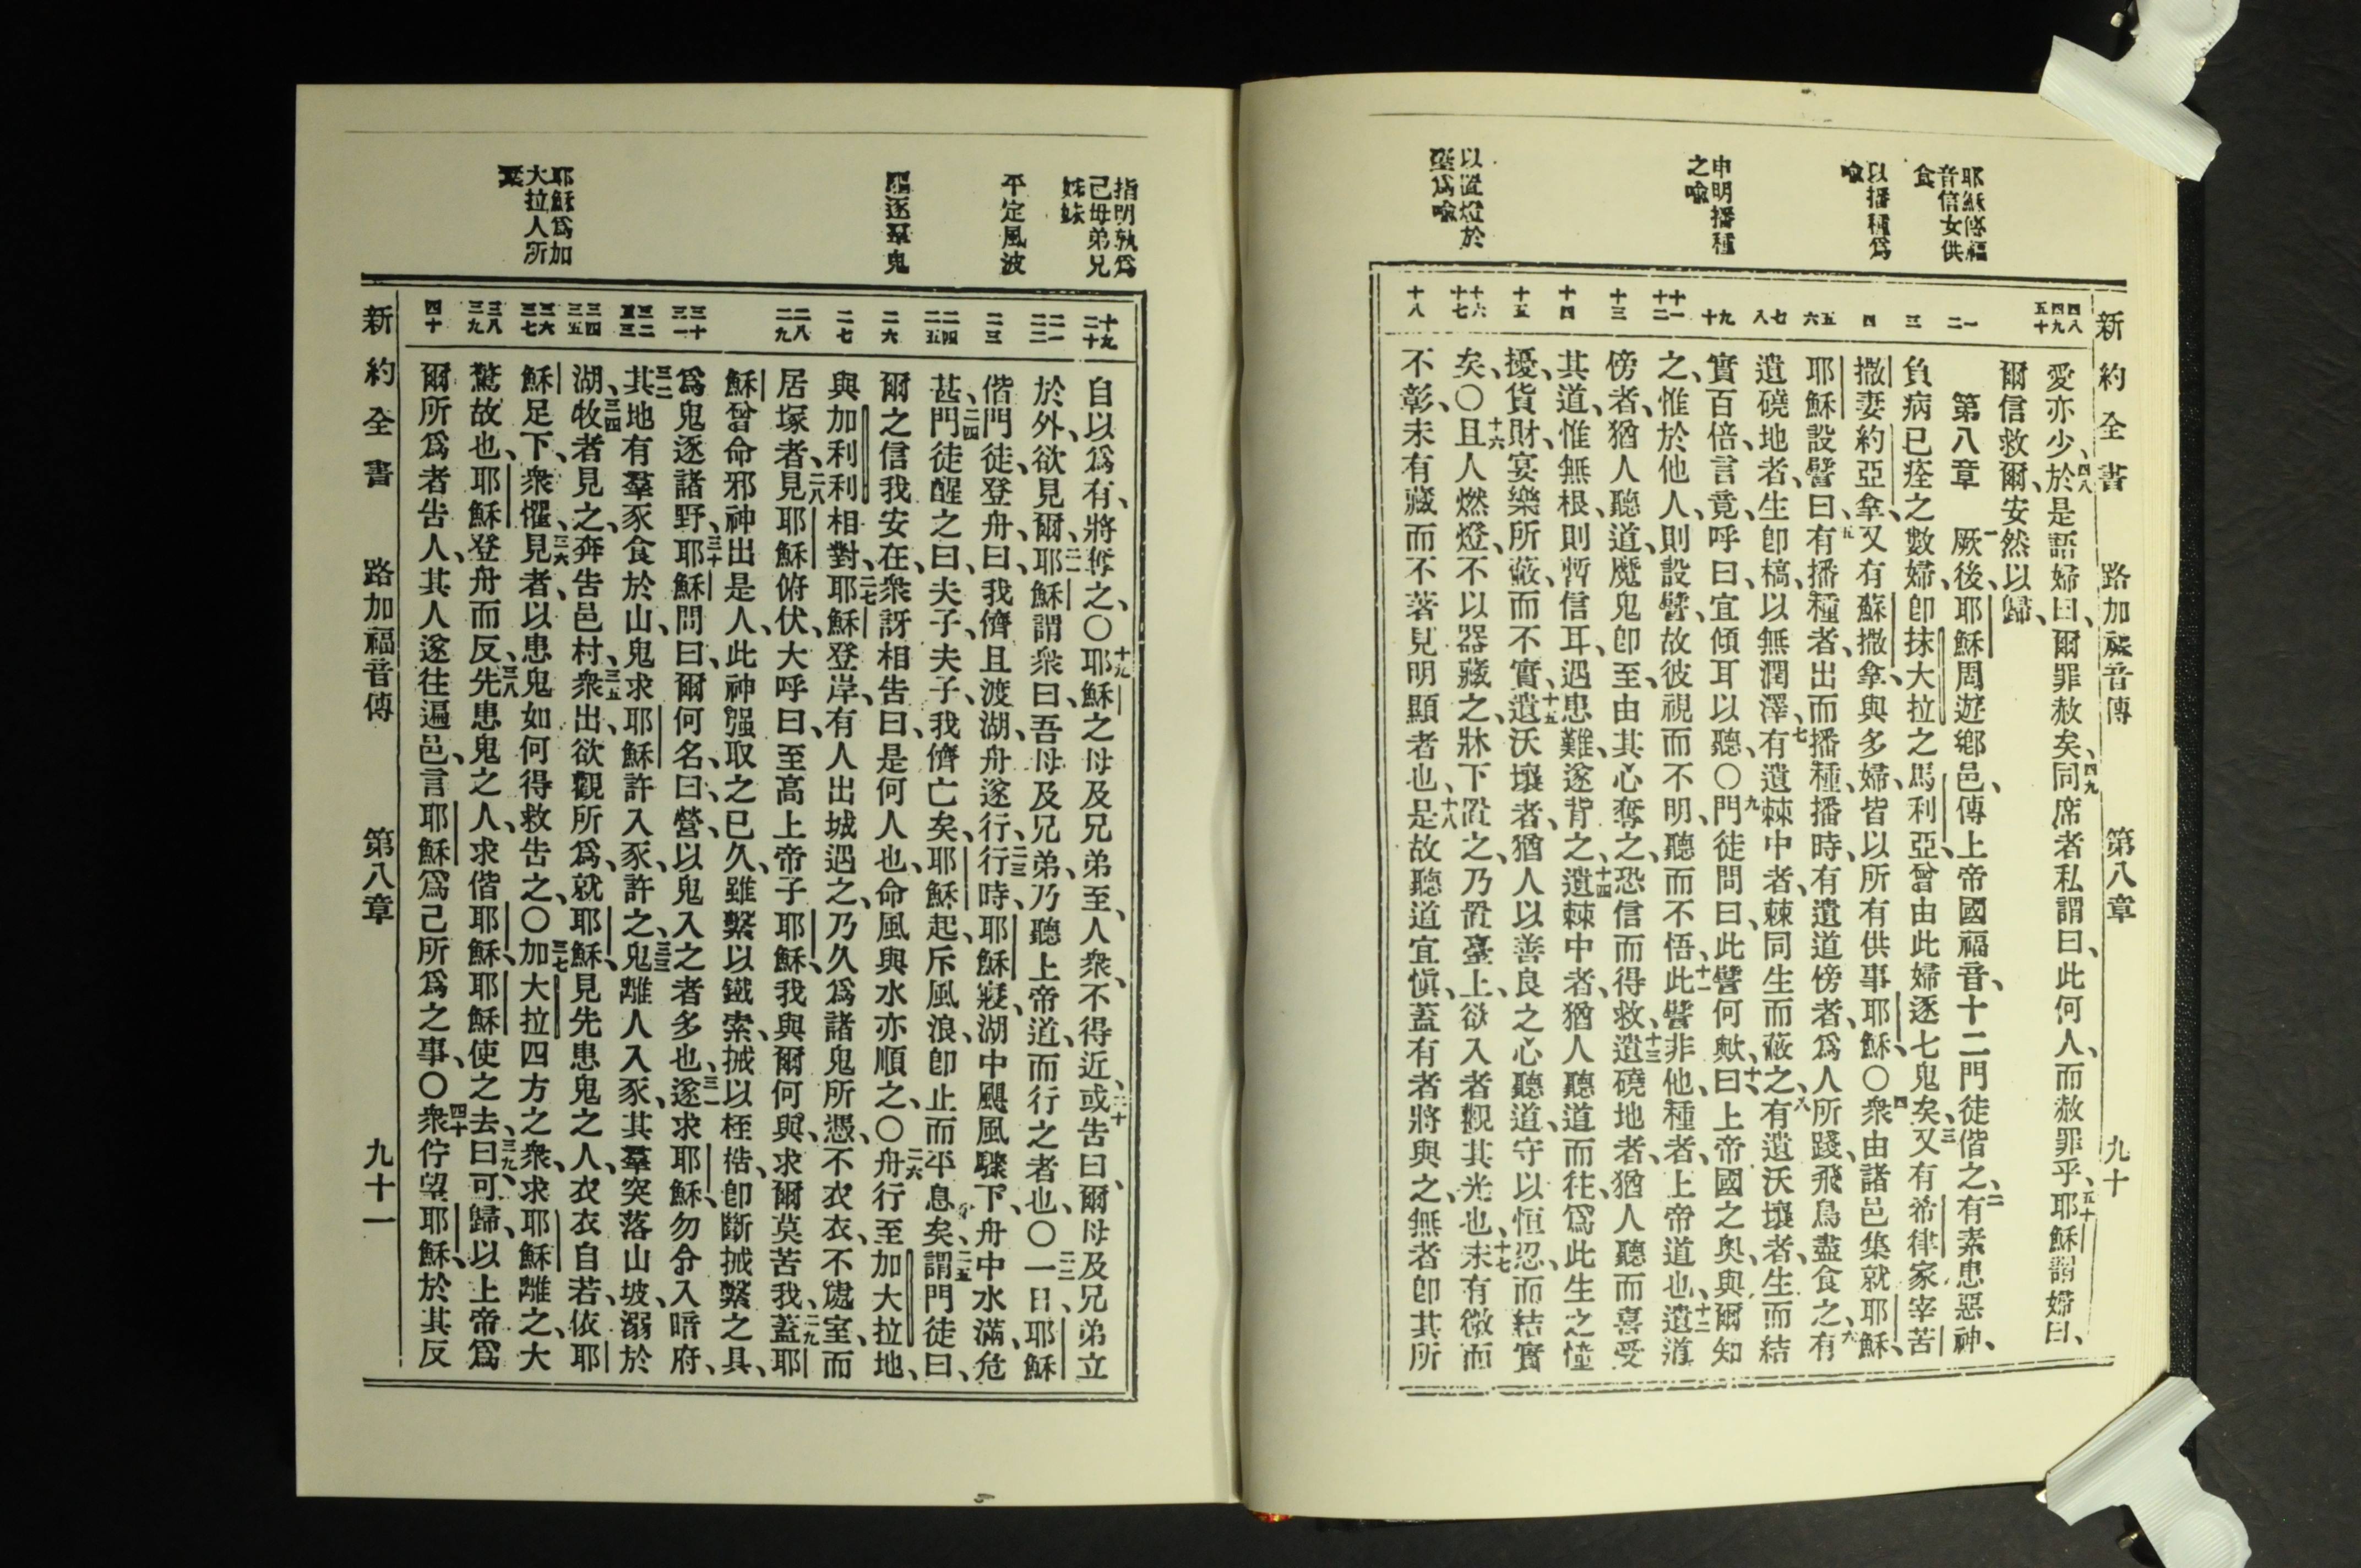 新約全書 路加福音傳 第八章 九十
耶穌傳福
音信女供
食
以播種爲
喩
申明播種
之喩
以置燈於
臺爲喩
四八 四九 五十
一 二
三
四
五 六
七 八
九 十
十一 十二
十三
十四
十五
十六 十七
十八
愛亦少、四八於是語婦曰、爾罪赦矣、四九同席者私謂曰、此何人、而赦罪乎、五十耶穌謂婦曰、
爾信救爾、安然以歸、
第八章 一厥後、耶穌周遊鄉邑、傳上帝國福音、十二門徒偕之、二有素患惡神、
負病已痊之數婦、卽抹大拉之馬利亞、曾由此婦逐七鬼矣、三又有希律家宰苦
撒妻約亞拿、又有蘇撒拿、與多婦、皆以所有供事耶穌、〇四衆由諸邑集就耶穌、
耶穌設譬曰、五有播種者出而播種、播時、有遺道傍者、爲人所踐、飛鳥盡食之、六有
遺磽地者、生卽槁、以無潤澤、七有遺棘中者、棘同生而蔽之、八有遺沃壤者、生而結
實百倍、言竟、呼曰、宜傾耳以聽、〇九門徒問曰、此譬何歟、十曰、上帝國之奥、與爾知
之、惟於他人、則設譬、故彼視而不明、聽而不悟、十一此譬非他、種者、上帝道也、十二遺道
傍者、猶人聽道、魔鬼卽至、由其心奪之、恐信而得救、十三遺磽地者、猶人聽而喜受
其道、惟無根、則暫信耳、遇患難、遂背之、十四遺棘中者、猶人聽道而往、爲此生之憧
擾、貨財、宴樂所蔽、而不實、十五遺沃壤者、猶人以善良之心聽道、守以恒忍、而結實
矣、〇十六且人燃燈、不以器藏之、牀下置之、乃置臺上、欲入者觀其光也、十七未有微而
不彰、未有藏而不著見明顯者也、十八是故聽道宜愼、蓋有者將與之、無者卽其所
指明孰爲
己母弟兄
姊妹
平定風波
驅逐羣鬼
耶穌爲加
大拉人所
棄
十九 二十
二一 二二
二三
二四 二五
二六
二七
二八 二九
三十 三一
三二 三三
三四 三五
三六 三七
三八 三九
四十
自以爲有、將奪之、〇十九耶穌之母及兄弟至、人衆、不得近、二十或告曰、爾母及兄弟立
於外、欲見爾、二一耶穌謂衆曰、吾母及兄弟、乃聽上帝道、而行之者也、〇二二一日、耶穌
偕門徒登舟、曰、我儕且渡湖、舟遂行、二三行時、耶穌寢、湖中颶風驟下、舟中水滿、危
甚、二四門徒醒之曰、夫子、夫子、我儕亡矣、耶穌起、斥風浪、卽止而平息矣、二五謂門徒曰、
爾之信我安在、衆訝相告曰、是何人也、命風與水亦順之、〇二六舟行至加大拉地、
與加利利相對、二七耶穌登岸、有人出城遇之、乃久爲諸鬼所憑、不衣衣、不處室、而
居塚者、二八見耶穌俯伏、大呼曰、至高上帝子耶穌、我與爾何與、求爾莫苦我、二九蓋耶
穌曾命邪神出是人、此神强取之已久、雖繫以鐵索、械以桎梏、卽斷械繫之具、
爲鬼逐諸野、三十耶穌問曰、爾何名、曰、營、以鬼入之者多也、三一遂求耶穌、勿令入暗府、
三二其地有羣豕食於山、鬼求耶穌許入豕、許之、三三鬼離人入豕、其羣突落山坡、溺於
湖、三四牧者見之、奔告邑村、三五衆出、欲觀所爲、就耶穌、見先患鬼之人、衣衣自若、依耶
穌足下、衆懼、三六見者、以患鬼如何得救告之、〇三七加大拉四方之衆、求耶穌離之、大
驚故也、耶穌登舟而反、三八先患鬼之人、求偕耶穌、耶穌使之去曰、三九可歸、以上帝爲
爾所爲者告人、其人遂往遍邑、言耶穌爲己所爲之事、〇四十衆佇望耶穌、於其反
新約全書 路加福音傳 第八章 九十一